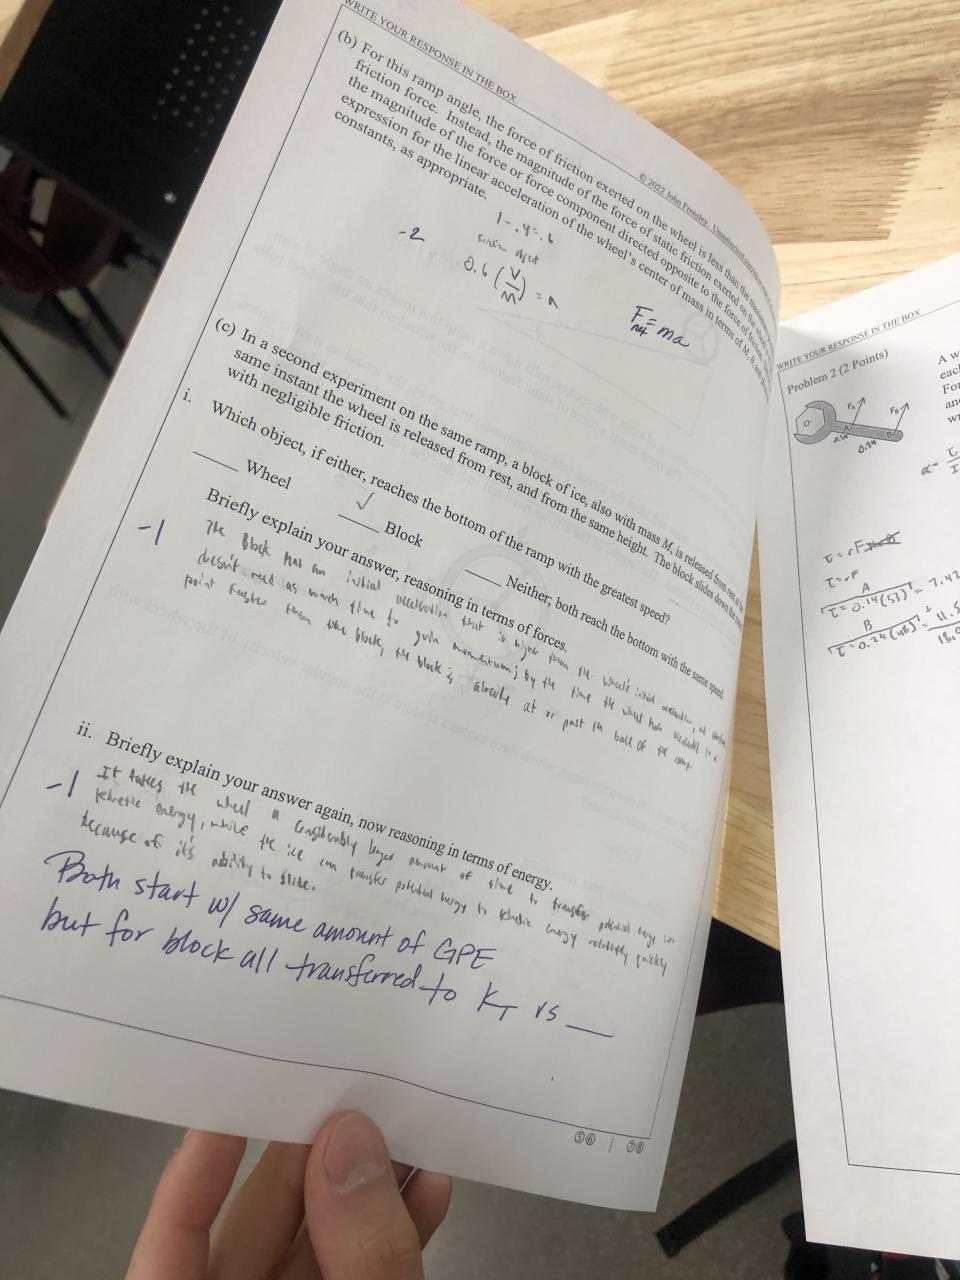 WRITE YOUR RESPONSE IN THE BOX
© 2022 John Frensley. Unauthorized
(b) For this ramp angle, the force of friction exerted on the wheel is less than the
friction force. Instead, the magnitude of the force of static friction exerted on the
the magnitude of the force or force component directed opposite to the force of friction.
expression for the linear acceleration of the wheel's center of mass in terms of M, θ, and
constants, as appropriate.
1-.4=.6
-2
0.6 ( ) = a
F net = ma
(c) In a second experiment on the same ramp, a block of ice, also with mass M, is released from rest at the
same instant the wheel is released from rest, and from the same height. The block slides down the
with negligible friction.
i. Which object, if either, reaches the bottom of the ramp with the greatest speed?
____ Wheel ✓ ____ Block ____ Neither; both reach the bottom with the same speed.
Briefly explain your answer, reasoning in terms of forces.
-1
The Block has an initial acceleration that is higher than the wheel's initial acceleration,
doesn't need as much time to gain momentum; by the time the wheel has accelerated to a
point faster than the block, the block is already at or past the ball of the ramp.
ii. Briefly explain your answer again, now reasoning in terms of energy.
-1
It takes the wheel a considerably larger amount of time to transfer potential energy into
kinetic energy, while the ice can transfer potential energy to kinetic energy relatively quickly
because of it's ability to slide.
Both start w/ same amount of GPE
but for block all transferred to K_T vs ___
⑤⑥ | ⑦⑧
WRITE YOUR RESPONSE IN THE BOX
Problem 2 (2 Points)
A w
each
For
an
w
F_A
F_B
A
B
0.24
τ=rF
τ=rF
A
τ=0.14(53) = 7.42
B
τ=0.24(48) = 11.5